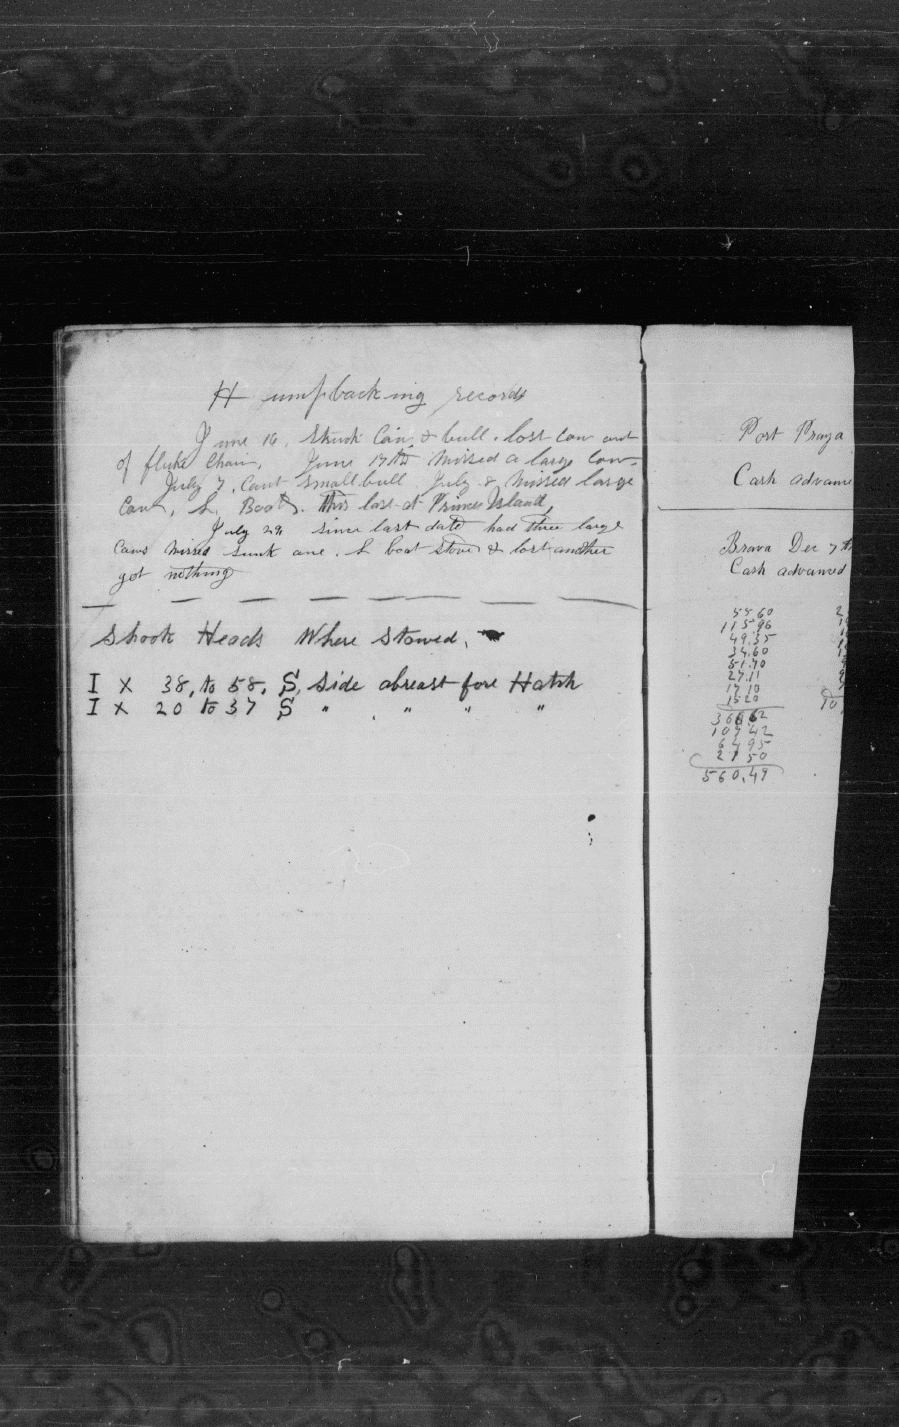 Humpbacking records
June 16, Struck Cow & bull. lost cow out
of fluke Chain, June 17th Missed a large Cow.
July 7, Caut Small bull. July 8 missed large
Cow, L. Boat. This last at Princes Island,
July 29, since last date had three large
Caws Missed sunk one. L boat stove & lost another
got nothing
Shook Heads Where Stowed,
I X 38, to 58, S, Side abreast fore Hatch
I X 20 to 37 S " " " "
Port Praya
Cash advanc
Brava Dec 7th
Cash advanced
55.60
115.96
49.35
34.60
51.70
27.11
17 10
15 20
366 62
107 42
64 95
21 50
560.49